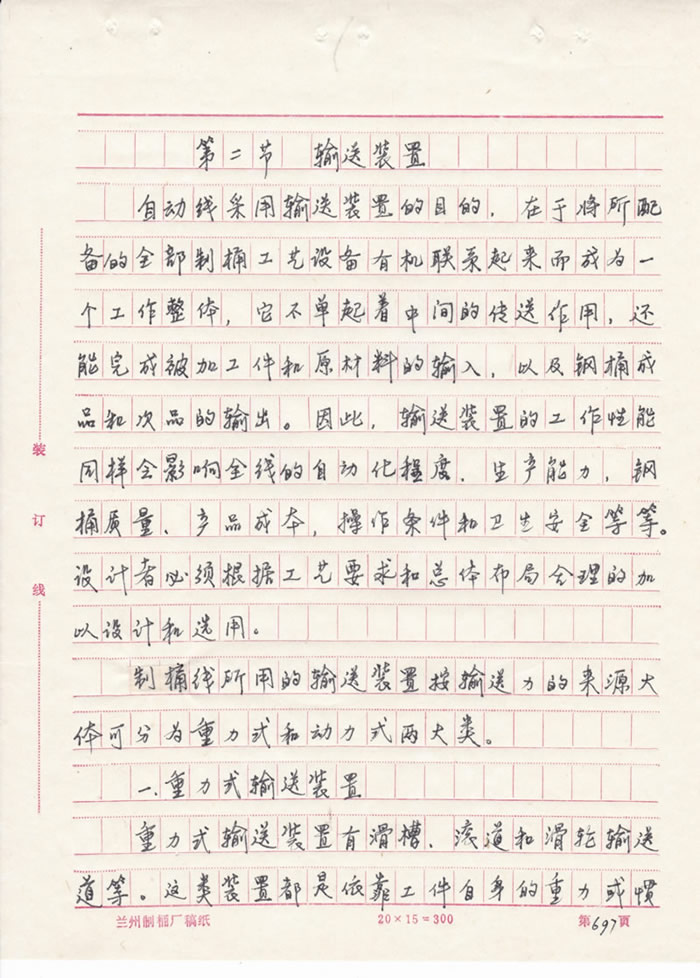 第二节 输送装置
自动线采用输送装置的目的，在于将所配
备的全部制桶工艺设备有机联系起来而成为一
个工作整体，它不单起着中间的传送作用，还
能完成被加工件和原材料的输入，以及钢桶成
品和次品的输出。因此，输送装置的工作性能
同样会影响全线的自动化程度、生产能力，钢
桶质量、产品成本，操作条件和卫生安全等等。
设计者必须根据工艺要求和总体布局合理的加
以设计和选用。
制桶线所用的输送装置按输送力的来源大
体可分为重力式和动力式两大类。
一、重力式输送装置
重力式输送装置有滑槽、滚道和滑轮输送
道等。这类装置都是依靠工件自身的重力或惯
装
订
线
兰州制桶厂稿纸 20×15=300 第697页